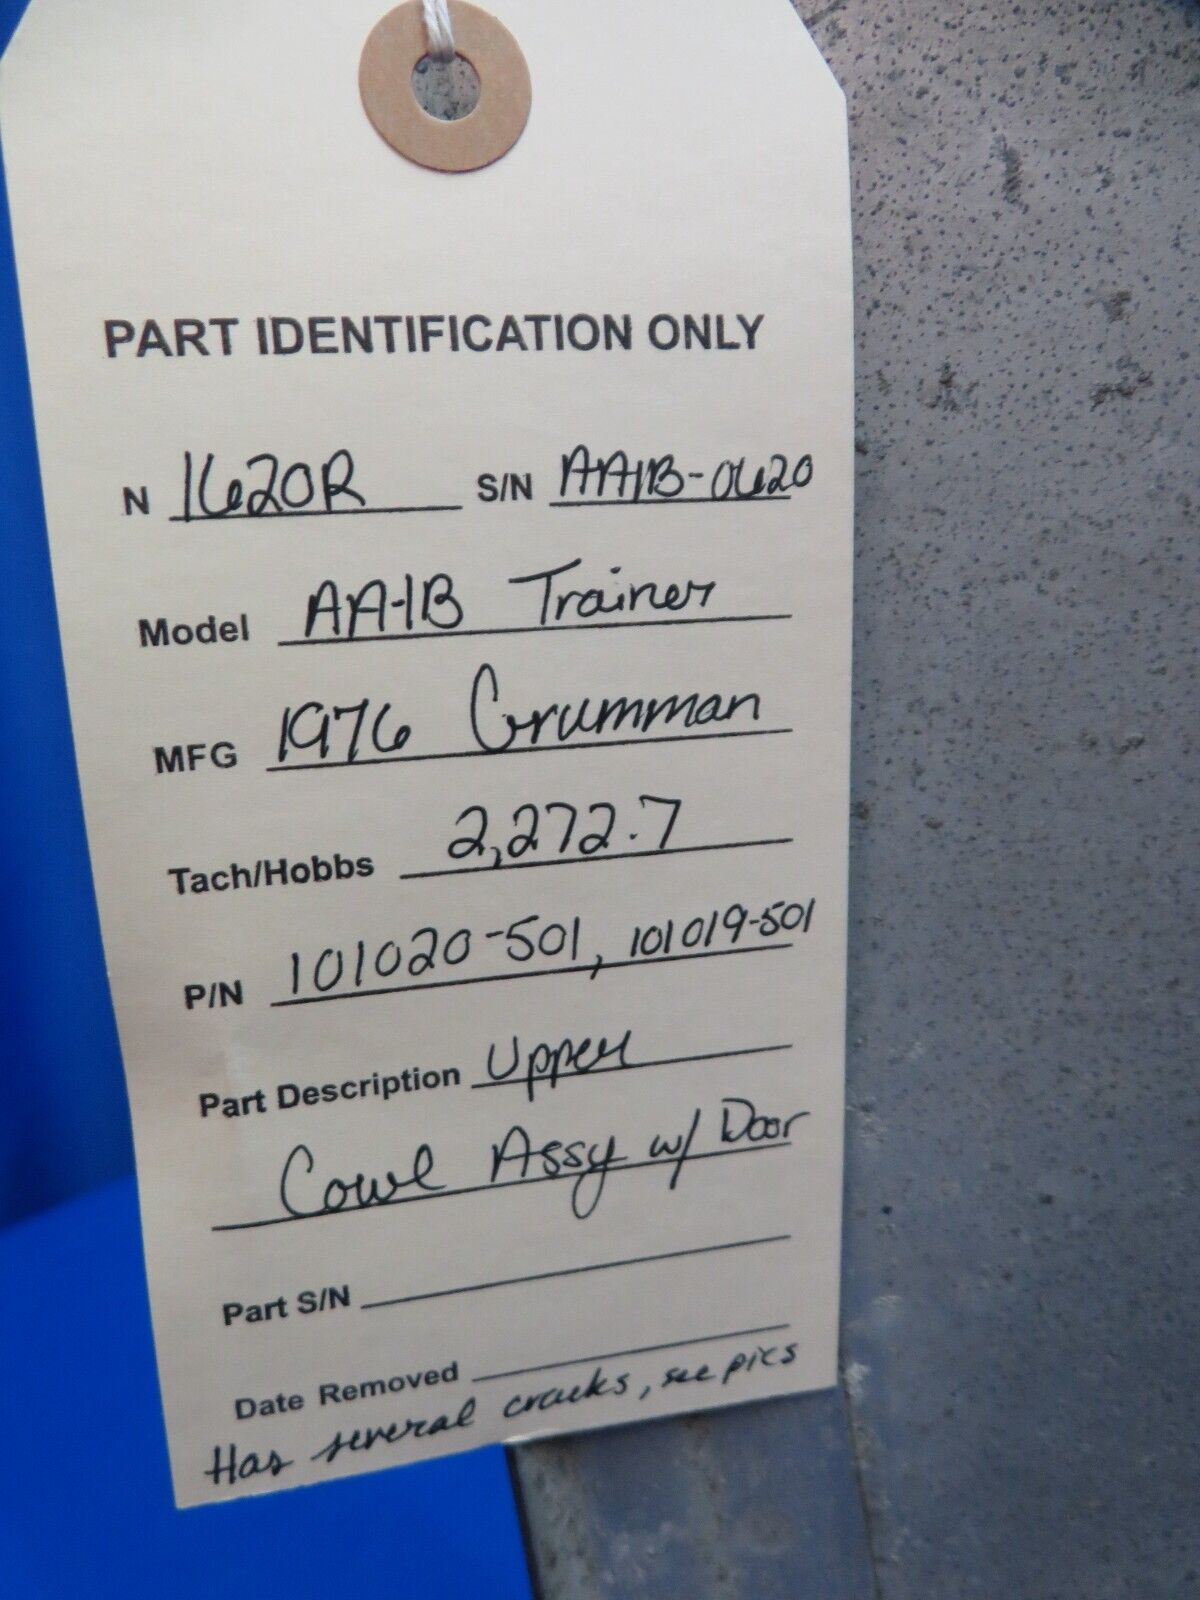 PART IDENTIFICATION ONLY
N 1620R S/N AA1B-0620
Model AA-1B Trainer
MFG 1976 Grumman
Tach/Hobbs 2,272.7
P/N 101020-501, 101019-501
Part Description Upper
Cowl Assy w/ Door
Part S/N
Date Removed
Has several cracks, see pics